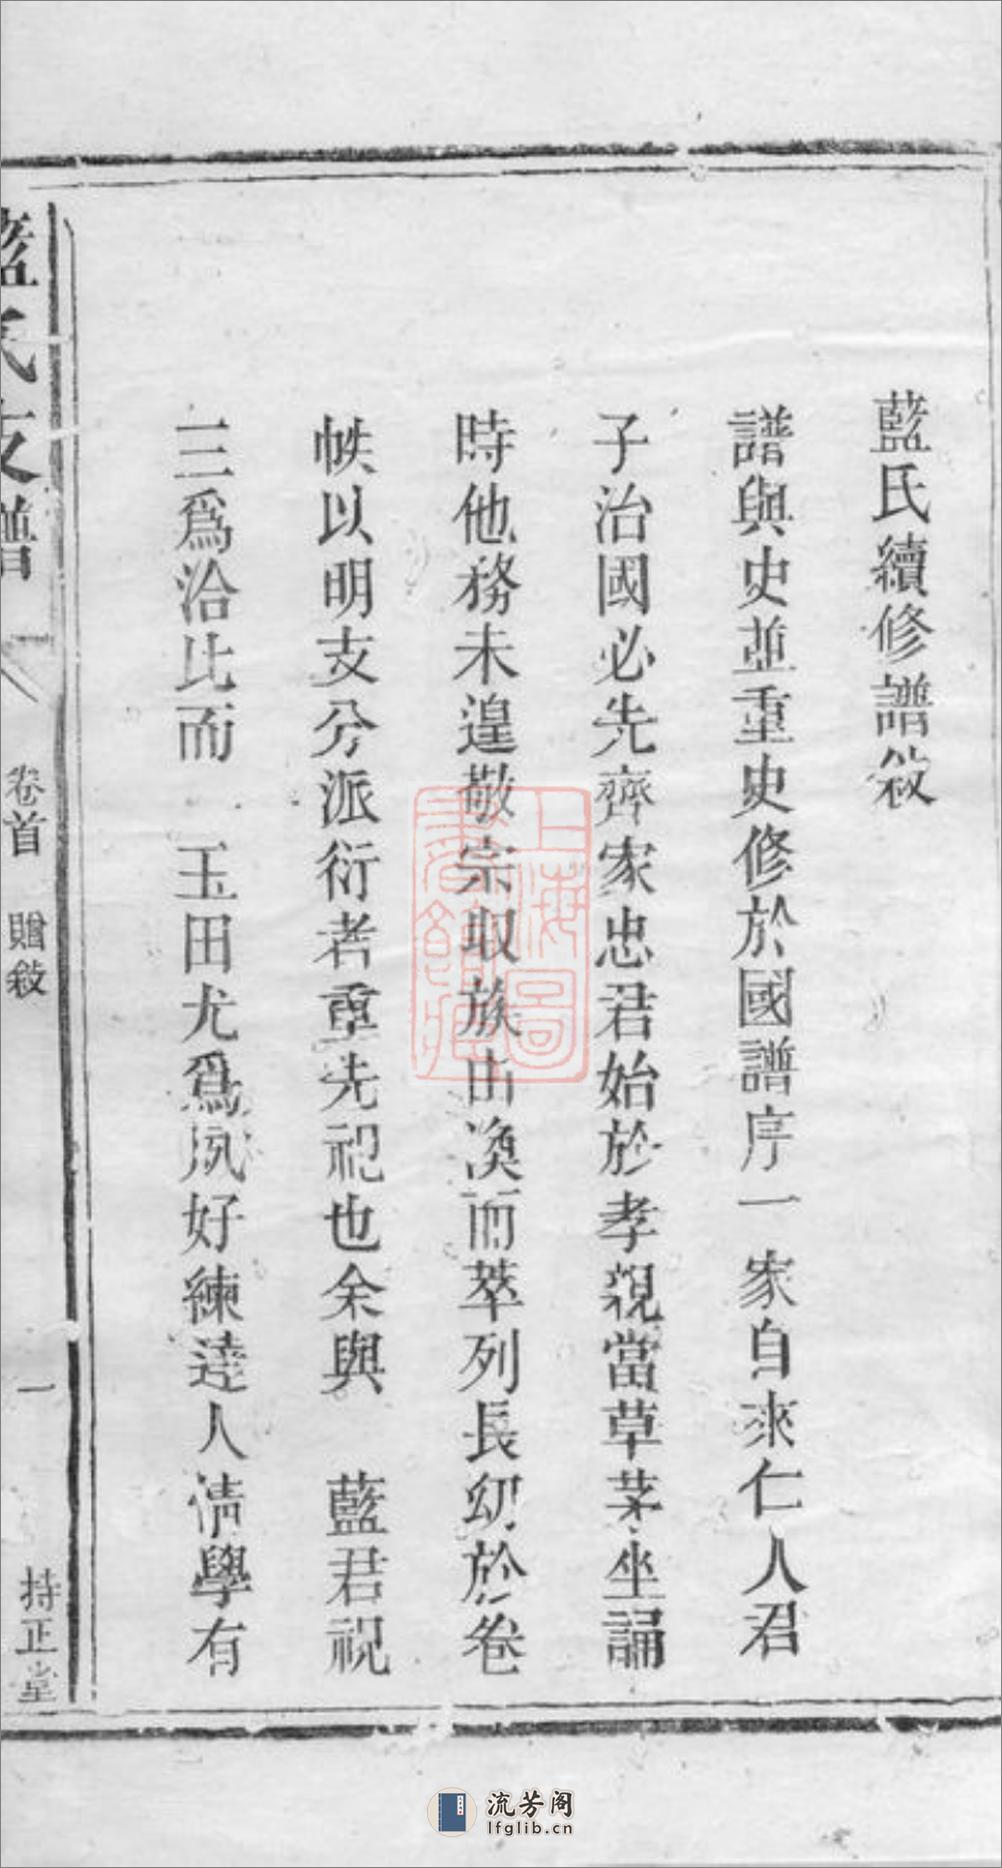 藍氏續修譜敘
譜與史並重史修於國譜序一家自來仁人君
子治國必先齊家忠君始於孝親當草茅坐誦
時他務未遑敬宗収族由渙而萃列長幼於卷
帙以明支分派衍者重先祀也余與 藍君視
三為洽比而 玉田尤為夙好練達人情學有
藍氏支譜 卷首 贈敘 一 持正堂
上海圖書館藏
流芳阁
lfglib.cn